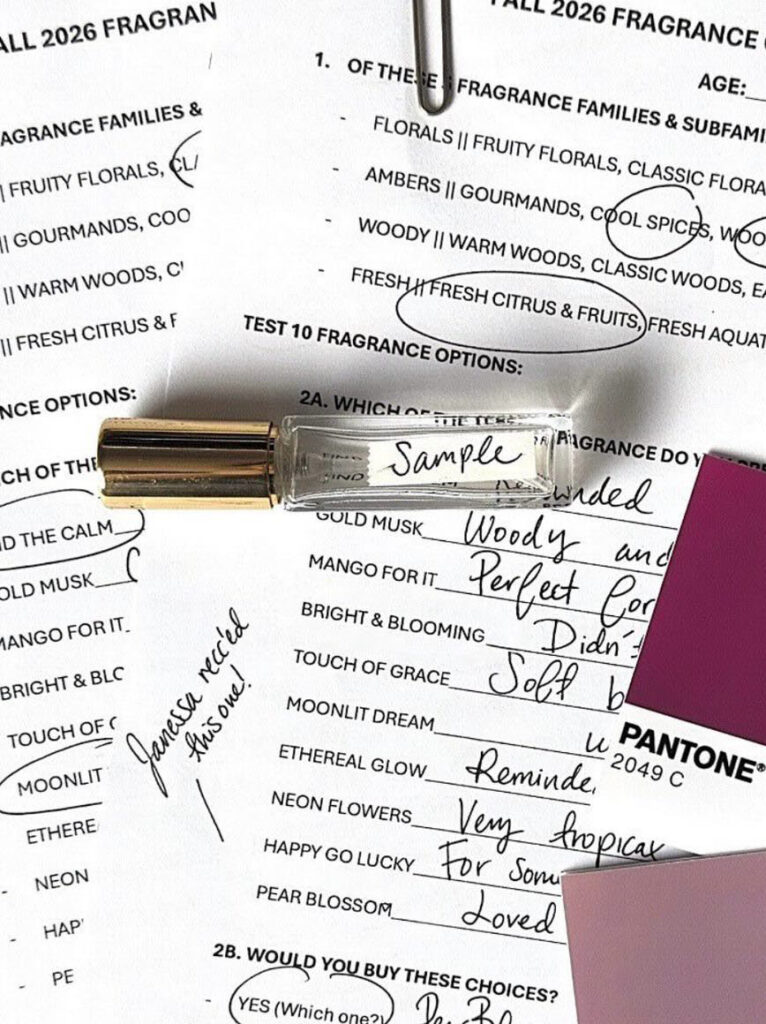 ALL 2026 FRAGRAN
AGRANCE FAMILIES &
|| FRUITY FLORALS, CL
|| GOURMANDS, COO
|| WARM WOODS, C
|| FRESH CITRUS & F
NCE OPTIONS:
CH OF THE
D THE CALM
OLD MUSK
MANGO FOR IT
BRIGHT & BLO
TOUCH OF
MOONLIT
ETHERE
- NEON
- HAP
- PE
FALL 2026 FRAGRANCE
AGE:
1. OF THESE FRAGRANCE FAMILIES & SUBFAMI
- FLORALS || FRUITY FLORALS, CLASSIC FLORA
- AMBERS || GOURMANDS, COOL SPICES, WOO
- WOODY || WARM WOODS, CLASSIC WOODS, EA
- FRESH || FRESH CITRUS & FRUITS, FRESH AQUAT
TEST 10 FRAGRANCE OPTIONS:
2A. WHICH OF FRAGRANCE DO Y
Sample
nded
GOLD MUSK Woody and
MANGO FOR IT Perfect for
BRIGHT & BLOOMING Didn't
TOUCH OF GRACE Soft b
MOONLIT DREAM
ETHEREAL GLOW Reminde
NEON FLOWERS Very tropical
HAPPY GO LUCKY For som
PEAR BLOSSOM Loved
2B. WOULD YOU BUY THESE CHOICES?
- YES (Which one?)
Janessa recc'ed
this one!
PANTONE®
2049 C